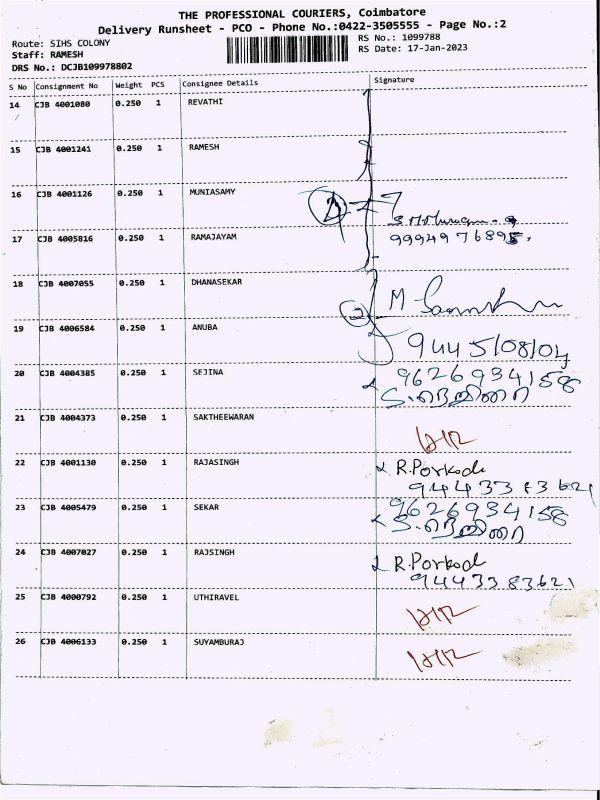 THE PROFESSIONAL COURIERS, Coimbatore
Delivery Runsheet - PCO - Phone No.:0422-3505555 - Page No.:2
Route: SIHS COLONY
RS No.: 1099788
Staff: RAMESH
RS Date: 17-Jan-2023
DRS No.: DCJB109978802
S No Consignment No Weight PCS Consignee Details Signature
14 CJB 4001080 0.250 1 REVATHI
15 CJB 4001241 0.250 1 RAMESH
16 CJB 4001126 0.250 1 MUNIASAMY
17 CJB 4005816 0.250 1 RAMAJAYAM 9994976895.
18 CJB 4007055 0.250 1 DHANASEKAR M
19 CJB 4006584 0.250 1 ANUBA 9445108104
20 CJB 4004385 0.250 1 SEJINA 9626934158
21 CJB 4004373 0.250 1 SAKTHEEWARAN
22 CJB 4001130 0.250 1 RAJASINGH R.Porkodi
9443383621
23 CJB 4005479 0.250 1 SEKAR 9626934158
24 CJB 4007027 0.250 1 RAJSINGH R.Porkodi
9443383621
25 CJB 4000792 0.250 1 UTHIRAVEL
26 CJB 4006133 0.250 1 SUYAMBURAJ